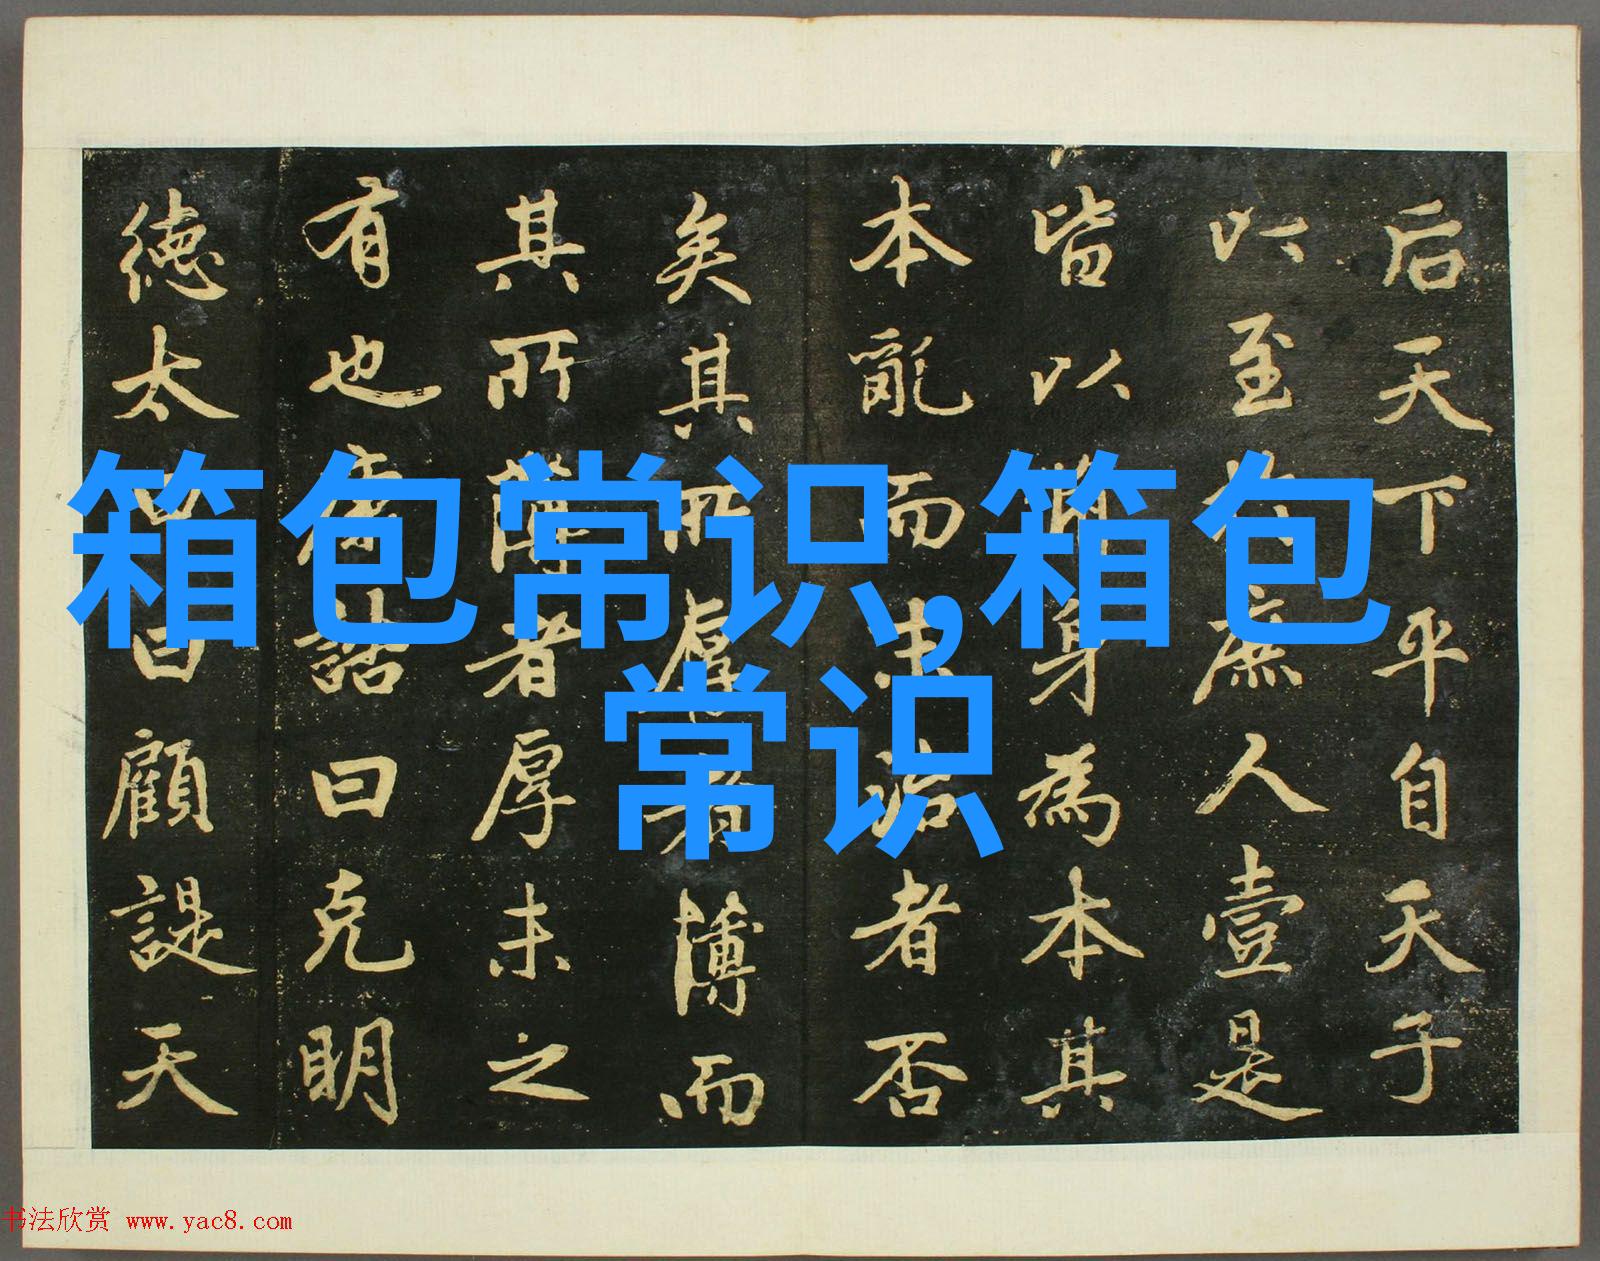 箱包常识,箱包
常识
后天下平自天子
以至於庶人壹是
皆以脩身為本其
本亂而末治者否
矣其所厚者薄而
其所薄者厚未之
有也康誥曰克明
德太甲曰顧諟天
书法欣赏 www.yac8.com